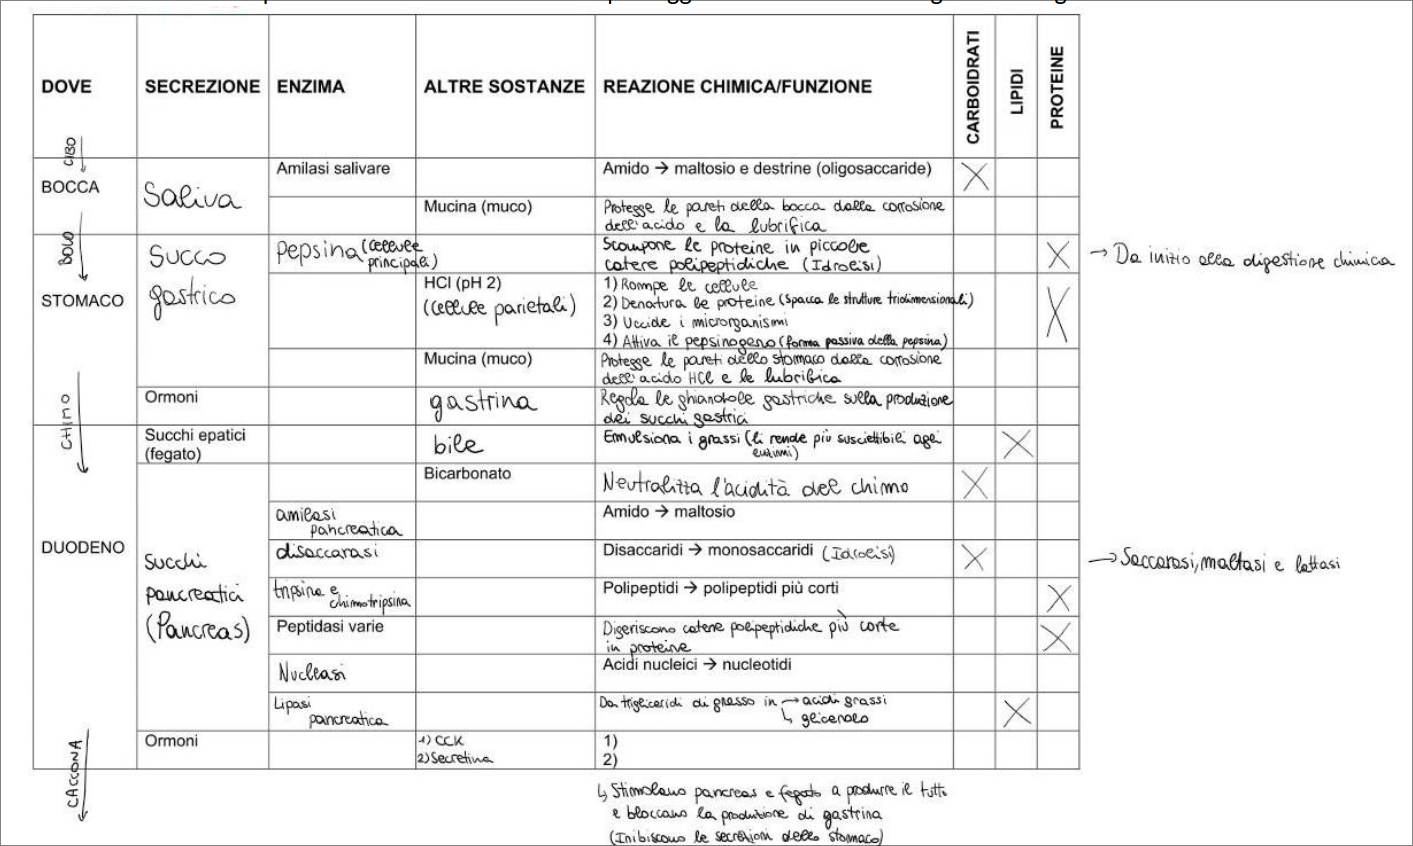 DOVE
SECREZIONE
ENZIMA
ALTRE SOSTANZE
REAZIONE CHIMICA/FUNZIONE
CARBOIDRATI
LIPIDI
PROTEINE
CIBO
BOCCA
Saliva
Amilasi salivare
Amido → maltosio e destrine (oligosaccaride)
X
Mucina (muco)
Protegge le pareti della bocca dalla corrosione
dell'acido e la lubrifica
BOLO
STOMACO
Succo
gastrico
Pepsina (cellule
principali)
Scompone le proteine in piccole
catere polipeptidiche (Idrolisi)
X
→ Da inizio alla digestione chimica
HCl (pH 2)
(cellule parietali)
1) Rompe le cellule
2) Denatura le proteine (spacca le strutture tridimensionali)
3) Uccide i microrganismi
4) Attiva il pepsinogeno (forma passiva della pepsina)
X
Mucina (muco)
Protegge le pareti dello stomaco dalla corrosione
dell'acido HCl e le lubrifica
Ormoni
gastrina
Regola le ghiandole gastriche sulla produzione
dei succhi gastrici
CHIMO
DUODENO
Succhi epatici
(fegato)
bile
Emulsiona i grassi (li rende più suscettibili agli
enzimi)
X
Succhi
pancreatici
(Pancreas)
Bicarbonato
Neutralizza l'acidità del chimo
X
amilasi
pancreatica
Amido → maltosio
disaccarasi
Disaccaridi → monosaccaridi (Idrolisi)
X
→ Saccarasi, maltasi e lattasi
tripsina e
chimotripsina
Polipeptidi → polipeptidi più corti
X
Peptidasi varie
Digeriscono catene polipeptidiche più corte
in proteine
X
Nucleasi
Acidi nucleici → nucleotidi
Lipasi
pancreatica
Da trigliceridi di grasso in → acidi grassi
↳ glicerolo
X
Ormoni
1) CCK
2) Secretina
1)
2)
CACCONA
↳ Stimolano pancreas e fegato a produrre il tutto
e bloccano la produzione di gastrina
(Inibiscono le secrezioni dello stomaco)